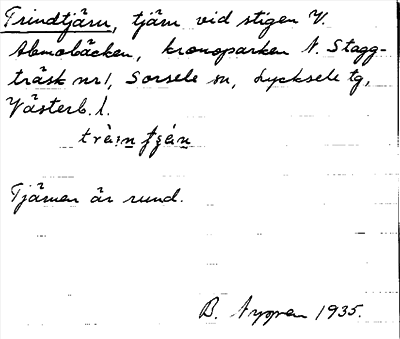 Trindtjärn, tjärn vid stigen V.
Abmobäcken, kronoparken N. Stagg-
träsk nr 1, Sorsele sn, Lycksele tg,
Västerb. l.
Tjärnen är rund.
B. Nygren 1935.